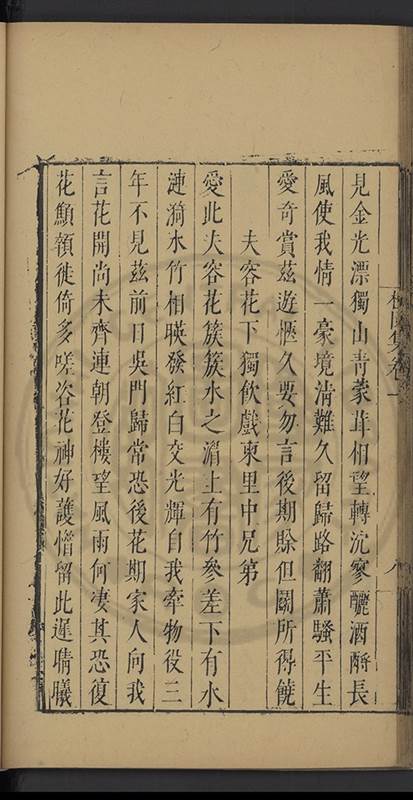 見金光漂獨山青蒙茸相望轉沉寥釃酒酹長
風使我情一豪境清難久留歸路翻蕭騷平生
愛奇賞茲遊愜久要勿言後期賒但闢所得饒
夫容花下獨飲戲柬里中兄弟
愛此夫容花簇簇水之湄上有竹參差下有水
漣漪水竹相暎發紅白交光輝自我牽物役三
年不見茲前日吳門歸常恐後花期家人向我
言花開尚未齊連朝登樓望風雨何凄其恐復
花顦顇徙倚多嗟咨花神好護惜留此遲晴曦